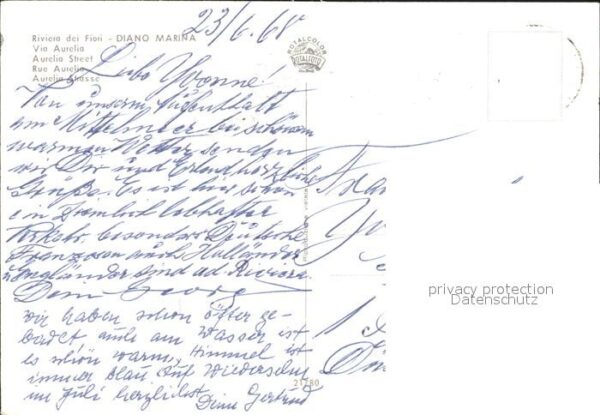 Riviera dei Fiori - DIANO MARINA
Via Aurelia
Aurelia Street
Rue Aurelia
Aurelia Strasse
23/6.68
ROTALCOLOR
ROTALFOTO
Liebe Yvonne!
Von unserm Aufenthalt
am Mittelmeer bei schönem
warmen Wetter senden
wir Dir und Erland herzliche
Grüße. Es ist hier schon
ein ziemlich lebhafter
Verkehr, besonders Deutsche
Franzosen auch Holländer
u Engländer sind ad Riviera.
Dein Georg
Wir haben schon öfter ge-
badet, auch am Wasser ist
es schön warm, Himmel ist
immer blau. Auf Wiedersehn
im Juli herzlichst
Deine Gertrud
21780
privacy protection
Datenschutz